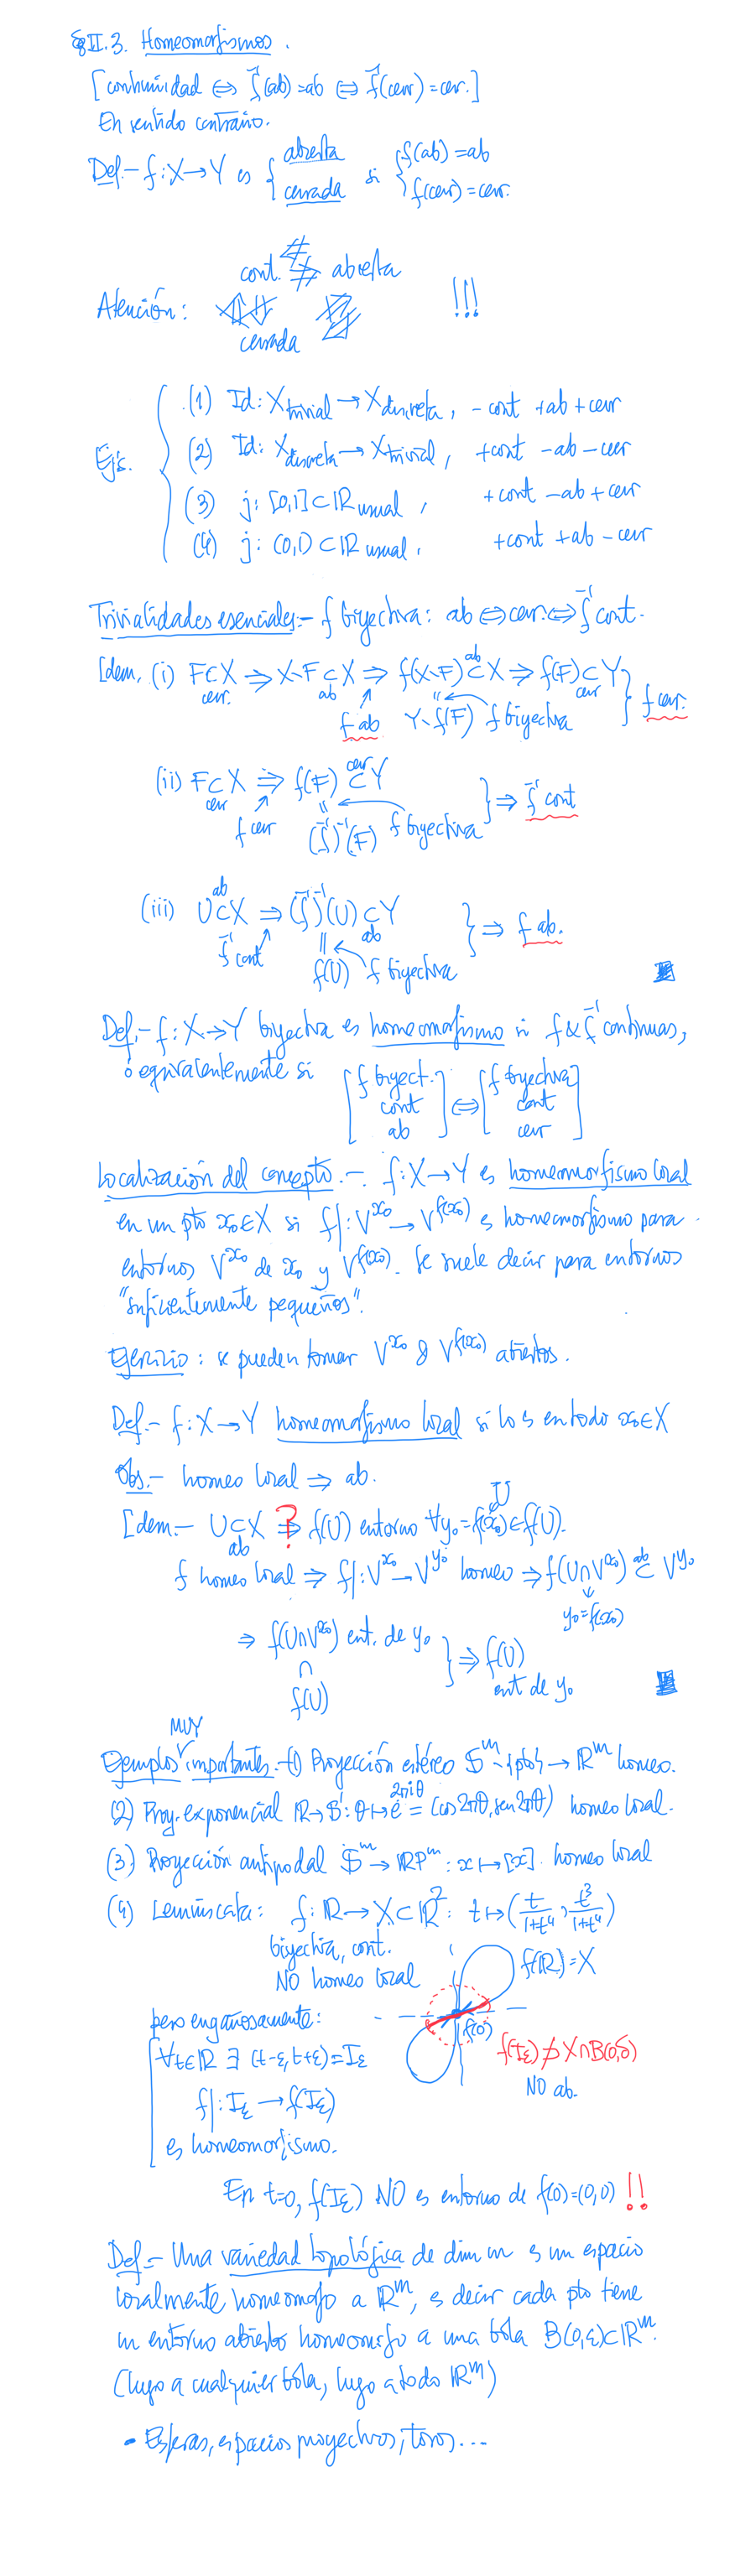 §II.3. Homeomorfismos.
[continuidad ⟺ f⁻¹(ab)=ab ⟺ f⁻¹(cerr)=cerr.]
En sentido contrario.
Def.– f:X→Y es { abierta / cerrada si { f(ab)=ab / f(cerr)=cerr.
Atención: cont. ⇏ ⇍ abierta !!!
cerrada
Ejs. (1) Id: X_trivial → X_discreta, –cont +ab +cerr
(2) Id: X_discreta → X_trivial, +cont –ab –cerr
(3) j: [0,1]⊂ℝ usual, +cont –ab +cerr
(4) j: (0,1)⊂ℝ usual. +cont +ab –cerr
Trivialidades esenciales.– f biyectiva: ab ⟺ cerr. ⟺ f⁻¹ cont.
[dem. (i) F⊂X ⇒ X∖F⊂X ⇒ f(X∖F) ⊂ X ⇒ f(F)⊂Y } f cerr.
cerr. ab ab cerr
f ab Y∖f(F) f biyectiva
(ii) F⊂X ⇒ f(F) ⊂ Y } ⇒ f⁻¹ cont
cerr cerr
f cerr (f⁻¹)⁻¹(F) f biyectiva
(iii) U⊂X ⇒ (f⁻¹)⁻¹(U)⊂Y } ⇒ f ab.
ab ab
f⁻¹ cont f(U) f biyectiva
Def.– f:X→Y biyectiva es homeomorfismo si f & f⁻¹ continuas,
ó equivalentemente si [f biyect. cont ab] ⟺ [f biyectiva cont cerr]
Localización del concepto.– f:X→Y es homeomorfismo local
en un pto x₀∈X si f|:V^{x₀}→V^{f(x₀)} es homeomorfismo para
entornos V^{x₀} de x₀ y V^{f(x₀)}. Se suele decir para entornos
"suficientemente pequeños".
Ejercicio: se pueden tomar V^{x₀} & V^{f(x₀)} abiertos.
Def.– f:X→Y homeomorfismo local si lo es en todo x₀∈X
Obs.– homeo local ⇒ ab.
[dem.– U⊂X ⇒ ? f(U) entorno ∀y₀=f(x₀)∈f(U).
ab U
f homeo local ⇒ f|:V^{x₀}→V^{y₀} homeo ⇒ f(U∩V^{x₀}) ⊂ V^{y₀}
ab
y₀=f(x₀)
⇒ f(U∩V^{x₀}) ent. de y₀ } ⇒ f(U)
∩ ent de y₀
f(U)
MUY
Ejemplos importantes.– (1) Proyección estéreo 𝕊^m∖{pto}→ℝ^m homeo.
(2) Proy. exponencial ℝ→𝕊¹: θ↦e^{2πiθ}=(cos2πθ, sen2πθ) homeo local.
(3) Proyección antipodal 𝕊^m→ℝP^m: x↦[x]. homeo local
(4) Lemniscata: f:ℝ→X⊂ℝ²: t↦(t/(1+t⁴), t³/(1+t⁴))
biyectiva, cont.
NO homeo local
f(ℝ)=X
f(0)
pero engañosamente:
∀t∈ℝ ∃ (t-ε,t+ε)=I_ε
f|: I_ε→f(I_ε)
es homeomorfismo.
f(I_ε)⊅X∩B(0,δ)
NO ab.
En t=0, f(I_ε) NO es entorno de f(0)=(0,0) !!
Def.– Una variedad topológica de dim m es un espacio
localmente homeomorfo a ℝ^m, es decir cada pto tiene
un entorno abierto homeomorfo a una bola B(0,ε)⊂ℝ^m.
(luego a cualquier bola, luego a todo ℝ^m)
• Esferas, espacios proyectivos, toros...